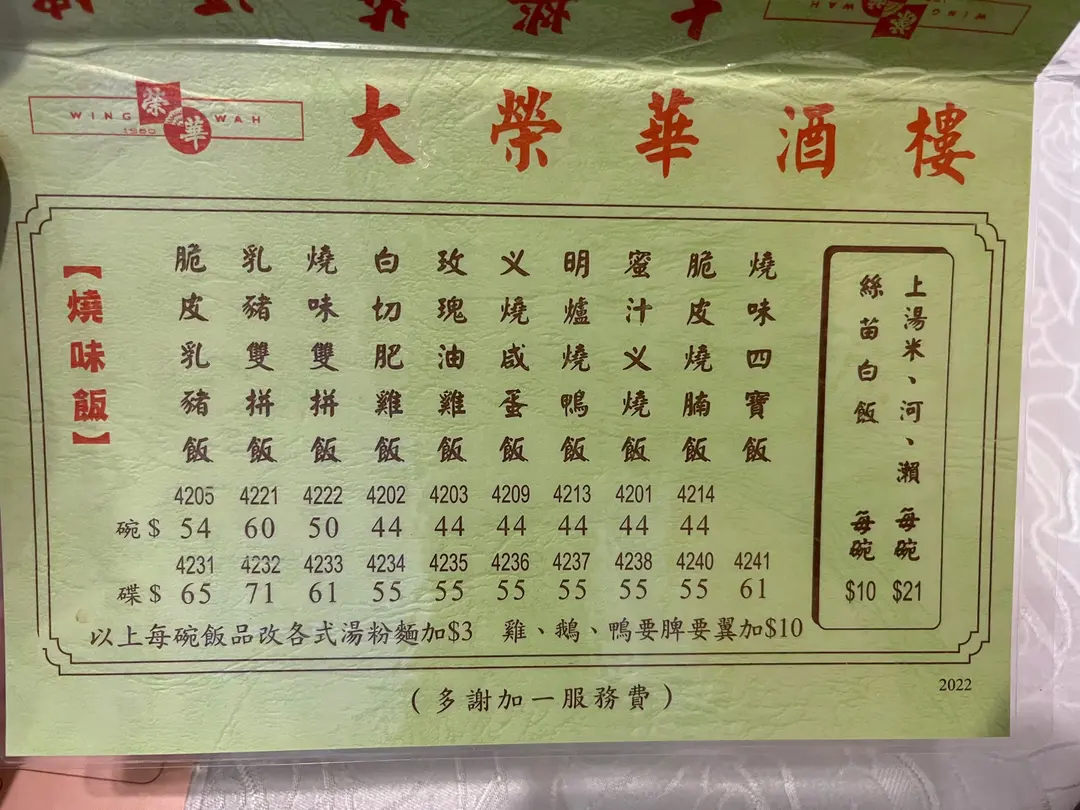 WING 榮華 WAH
1950
大榮華酒樓
【燒味飯】
脆皮乳豬飯
乳豬雙拼飯
燒味雙拼飯
白切肥雞飯
玫瑰油雞飯
叉燒咸蛋飯
明爐燒鴨飯
蜜汁叉燒飯
脆皮燒腩飯
燒味四寶飯
4205 4221 4222 4202 4203 4209 4213 4201 4214
碗 $ 54 60 50 44 44 44 44 44 44
4231 4232 4233 4234 4235 4236 4237 4238 4240 4241
碟 $ 65 71 61 55 55 55 55 55 55 61
以上每碗飯品改各式湯粉麵加$3 雞、鵝、鴨要脾要翼加$10
上湯米、河、瀨 每碗 $21
絲苗白飯 每碗 $10
(多謝加一服務費)
2022